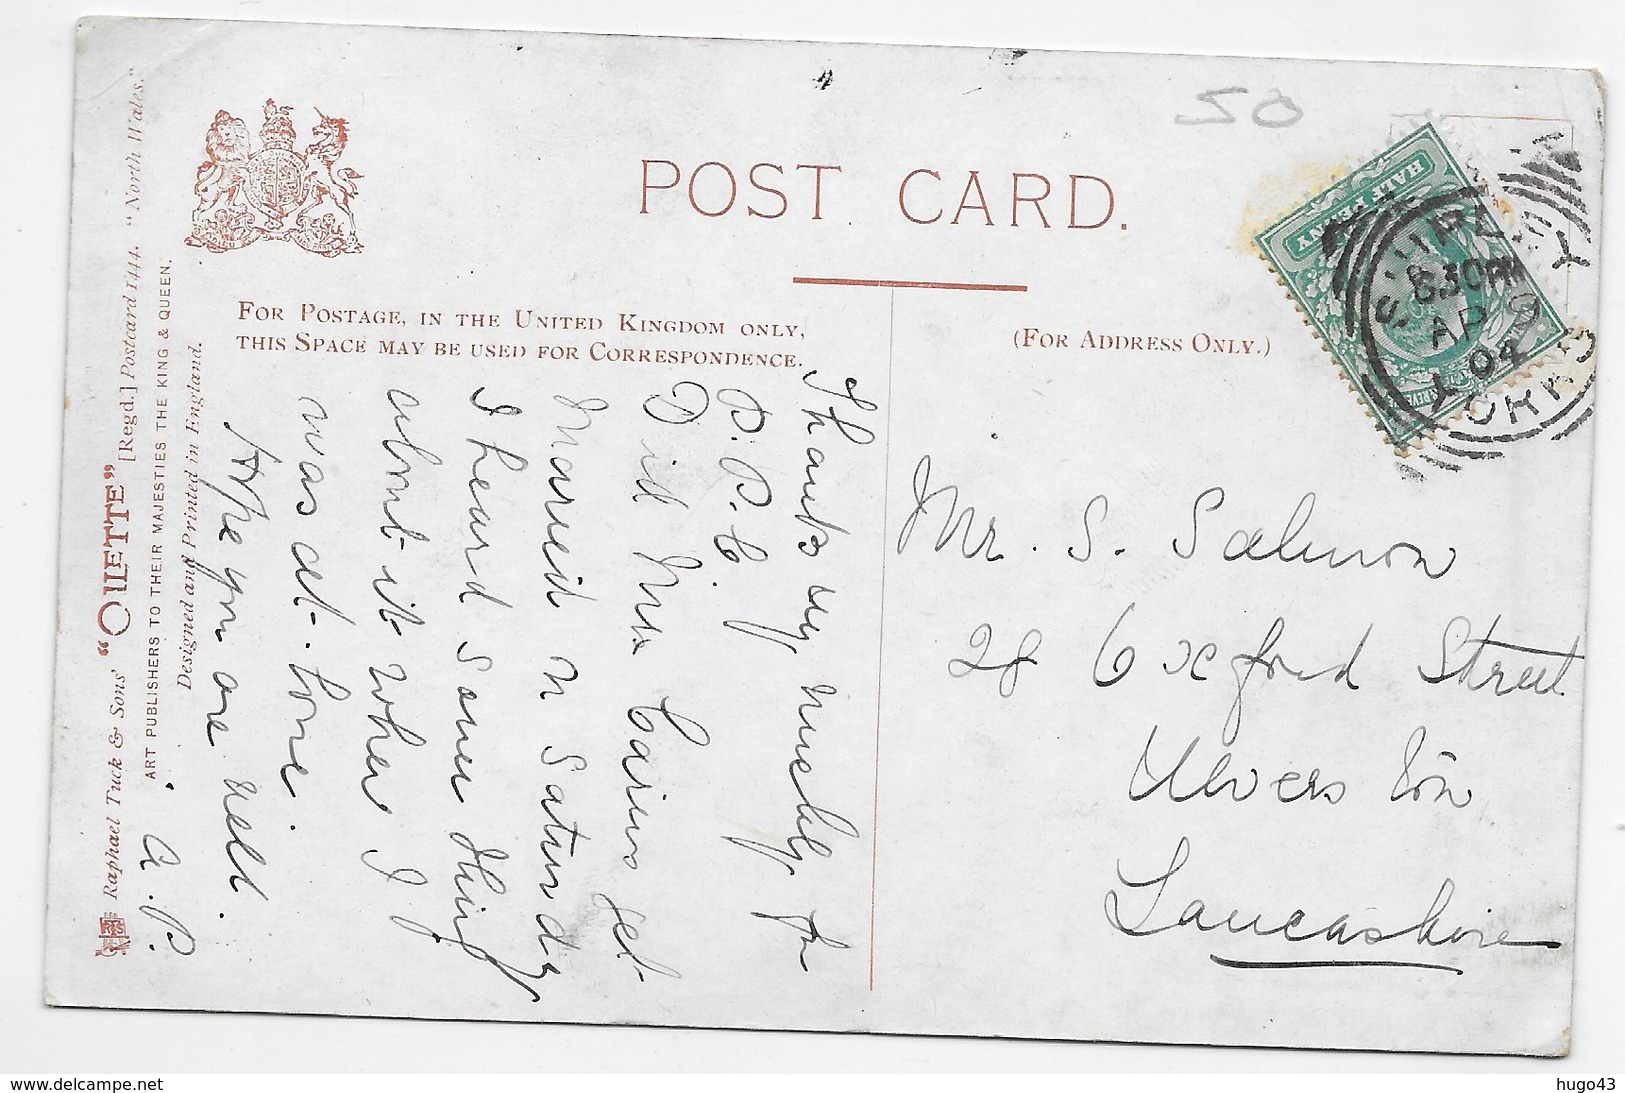 50
POST CARD.
FOR POSTAGE, IN THE UNITED KINGDOM ONLY,
THIS SPACE MAY BE USED FOR CORRESPONDENCE.
(FOR ADDRESS ONLY.)
HALF PENNY
8.30PM
AP
04
Thanks very much for
P.P.C.
Did Miss get
married on Saturday
I heard some thing
about it when I
was at home.
Hope you are well.
A.P.
Mr. S. Salmon
28 Oxford Street
Ulverston
Lancashire
Raphael Tuck & Sons' "OILETTE" [Regd.] Postcard 1444. "North Wales."
ART PUBLISHERS TO THEIR MAJESTIES THE KING & QUEEN.
Designed and Printed in England.
delcampe.net
hugo43